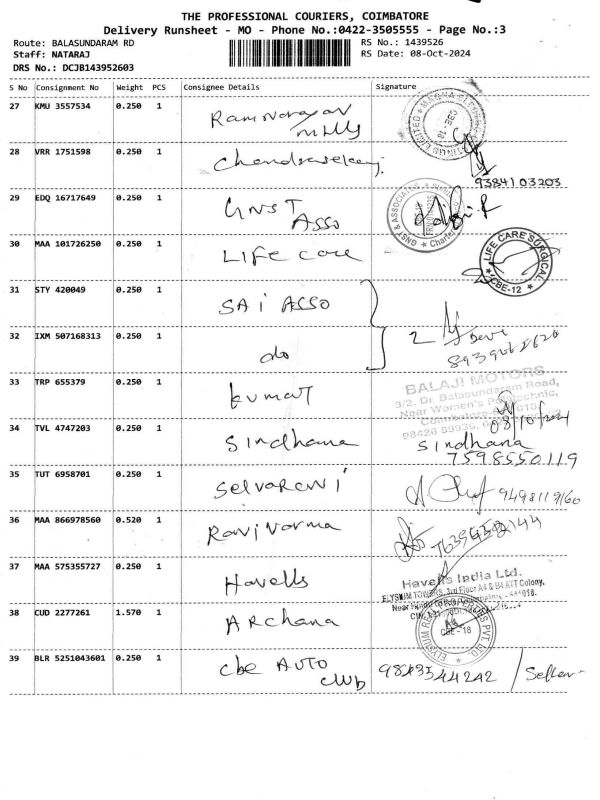 THE PROFESSIONAL COURIERS, COIMBATORE
Delivery Runsheet - MO - Phone No.:0422-3505555 - Page No.:3
Route: BALASUNDARAM RD
RS No.: 1439526
Staff: NATARAJ
RS Date: 08-Oct-2024
DRS No.: DCJB143952603
S No Consignment No Weight PCS Consignee Details Signature
27 KMU 3557534 0.250 1 Ramnarayan
mills
28 VRR 1751598 0.250 1 Chandrasekar
9384103203
29 EDQ 16717649 0.250 1 GNST
ASSO
30 MAA 101726250 0.250 1 LIFe care
LIFE CARE SURGICAL
CBE-12
31 STY 420049 0.250 1 SAi ASSO
32 IXM 507168313 0.250 1 do
2
33 TRP 655379 0.250 1 kumar
BALAJI MOTORS
3/2, Dr Balasundaram Road,
Near Women's Polytechnic,
08/10/2024
34 TVL 4747203 0.250 1 Sindhana
Sindhana
7598550119
35 TUT 6958701 0.250 1 Selvarani
9498119160
36 MAA 866978560 0.520 1 Ravivarma
37 MAA 575355727 0.250 1 Havells
Havells India Ltd.
ELYSIUM TOWERS, 3rd Floor A4 & B4 ATT Colony,
38 CUD 2277261 1.570 1 Archana
CBE - 18
39 BLR 5251043601 0.250 1 cbe AUTO
club